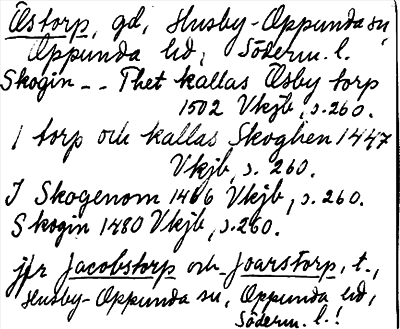 Åstorp, gd, Husby-Oppunda sn,
Oppunda hd, Söderm. l.
Skogin -- Thet kallas Åsby torp
1502 Vkjb, s. 260.
1 torp och kallas Skoghen 1447
Vkjb, s. 260.
J Skogenom 1466 Vkjb, s. 260.
Skogin 1480 Vkjb, s. 260.
jfr Jacobstorp och Joarstorp, t.,
Husby-Oppunda sn, Oppunda hd,
Söderm. l.!